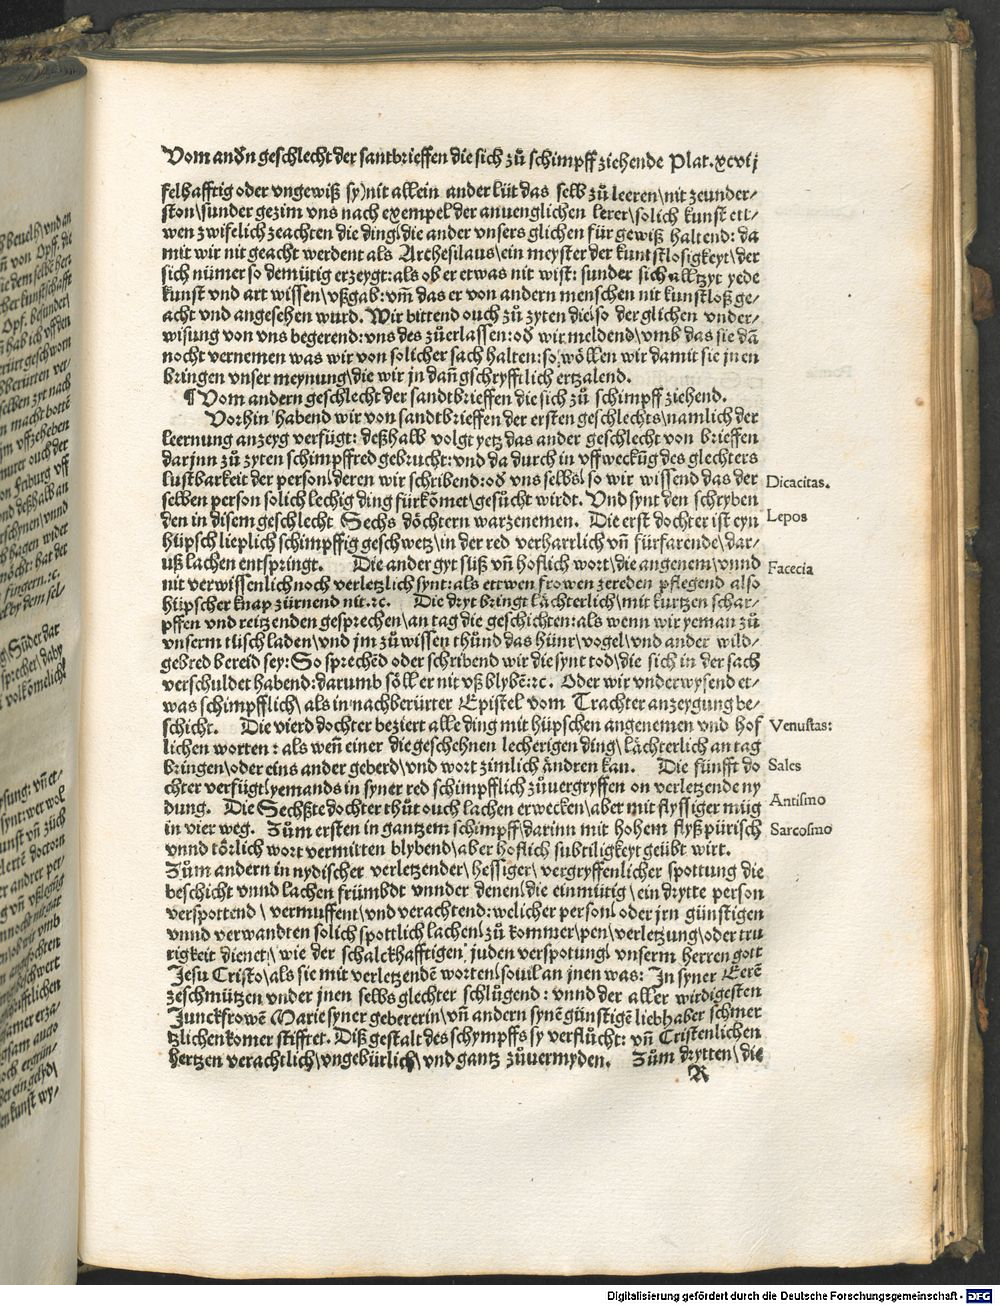 Vom anďn geschlecht der santbrieffen die sich zů schimpff ziehende Plat.xcvij
felhafftig oder vngewiß sy)nit allein ander lüt das selb zů leeren/nit zeunder⸗
ston\sunder gezim vns nach exempel der anuenglichen lerer/solich kunst ett⸗
wen zwifelich zeachten die ding\die ander vnsers glichen für gewiß haltend: da
mit wir nit geacht werdent als Archesilaus\ein meyster der kunstlosigkeyt\der
sich nümer so demütig erzeygt:als ob er etwas nit wist: sunder sich alltzyt yede
kunst vnd art wissen/vßgab:vm̃ das er von andern menschen nit kunstloß ge⸗
acht vnd angesehen wurd. Wir bittend ouch zů zyten die\so der glichen vnder⸗
wisung von vns begerend:vns des zůerlassen:oď wir meldend/vmb das sie dañ
nocht vernemen was wir von solicher sach halten:so wöllen wir damit sie jn en
bringen vnser meynung\die wir jn dañ gschryfftlich ertzalend.
¶ Vom andern geschlecht der sandtbrieffen die sich zů schimpff ziehend.
Vorhin habend wir von sandtbrieffen der ersten geschlechts\namlich der
leernung anzeyg verfügt: deßhalb volgt yetz das ander geschlecht von brieffen
darjnn zů zyten schimpffred gebrucht:vnd da durch in vffweckũg des glechters
lustbarkeit der person\deren wir schribend:oď vns selbs\so wir wissend das der
selben person solich lechig ding fürkõmet\gesücht wirdt. Vnd synt den schryben
den in disem geschlecht Sechs döchtern warzenemen. Die erst dochter ist eyn
hüpsch lieplich schimpffig geschwetz\in der red verharrlich vñ fürfarende\dar⸗
uß lachen entspringt. Die ander gyt süß vñ hoflich wort\die angenem\vnnd
nit verwissenlich noch verletzlich synt:als ettwen frowen zereden pflegend also
hüpscher knap zürnend nit.ꝛc. Die dryt bringt lächterlich\mit kurtzen schar⸗
pffen vnd reitzenden gesprechen/an tag die geschichten:als wenn wir yeman zů
vnserm tisch laden\vnd jm zů wissen thůnd das hünr\vogel\vnd ander wild⸗
gebred bereid sey:So sprechẽd oder schribend wir die synt tod\die sich in der sach
verschuldet habend:darumb söll er nit vß blybẽ:ꝛc. Oder wir vnderwysend et⸗
was schimpfflich\als in nachberürter Epistel vom Trachter anzeygung be⸗
schicht. Die vierd dochter beziert alle ding mit hüpschen angenemen vnd hof
lichen worten: als weñ einer die geschehnen lecherigen ding\lächterlich an tag
bringen\oder eins ander geberd\vnd wort zimlich ändren kan. Die fünfft do
chter verfügt\yemands in syner red schimpfflich zůuergryffen on verletzende ny
dung. Die Sechßte dochter thůt ouch lachen erwecken\aber mit flyssiger müg
in vier weg. Zům ersten in gantzem schimpff\darinn mit hohem flyß pürisch
vnnd törlich wort vermitten blybend\aber hoflich subtiligkeyt geübt wirt.
Zům andern in nydischer verletzender\hessiger\vergryffenlicher spottung die
beschicht vnnd lachen frümbdt vnnder denen\die einmütig\ein drytte person
verspottend\vermuffent\vnd verachtend:welicher person\oder jrn günstigen
vnnd verwandten solich spottlich lachen\zů kommer\pen\verletzung\oder tru
rigkeit dienet\wie der schalckhafftigen juden verspotung\vnserm herren gott
Jesu Cristo\als sie mit verletzendẽ worten\souil an jnen was: Jn syner Eerẽ
zeschmützen vnder jnen selbs glechter schlůgend: vnnd der aller wirdigesten
Junckfrowẽ Marie syner gebererin\vñ andern synẽ günstigẽ liebhaber schmer
tzlichen komer stifftet. Diß gestalt des schympffs sy verflůcht: vñ Cristenlichen
hertzen verachtlich\vngebürlich\vnd gantz zůuermyden. Zům drytten\die
R
Dicacitas.
Lepos
Facecia
Venustas:
Sales
Antismo
Sarcosmo
Digitalisierung gefördert durch die Deutsche Forschungsgemeinschaft - DFG